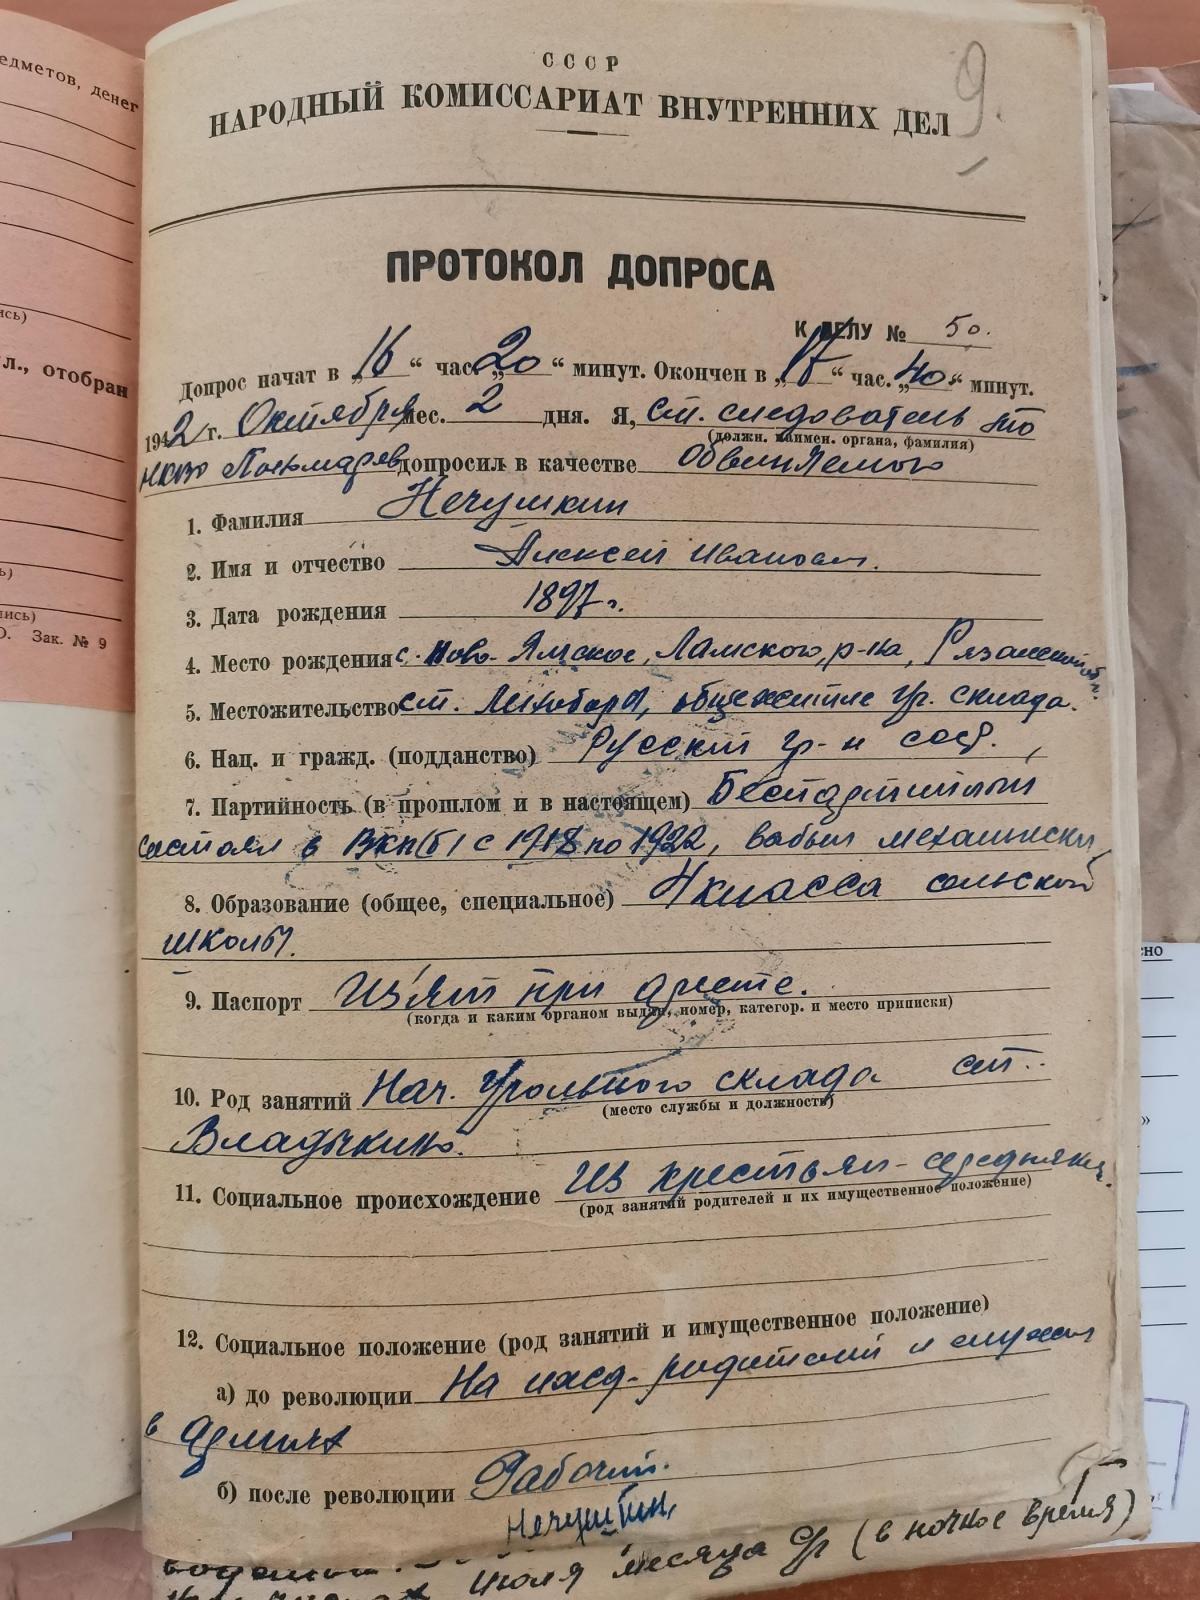 едметов, денег
ись)
л., отобран
ь)
пись)
О. Зак. № 9
9.
СССР
НАРОДНЫЙ КОМИССАРИАТ ВНУТРЕННИХ ДЕЛ
ПРОТОКОЛ ДОПРОСА
К ДЕЛУ № 50.
Допрос начат в „16“ час. „20“ минут. Окончен в „17“ час. „40“ минут.
1942 г. Октября мес. 2 дня. Я, ст. следователь
(должн. наимен. органа, фамилия)
допросил в качестве Обвиняемого
1. Фамилия Нечушкин
2. Имя и отчество Алексей Иванович.
3. Дата рождения 1897 г.
4. Место рождения с. Ново-Ямское, Ламского, р-на, Рязанской обл.
5. Местожительство ст. Лихоборы, общежитие уг. склада.
6. Нац. и гражд. (подданство) Русский гр-н
7. Партийность (в прошлом и в настоящем) Беспартийный
состоял в ВКП(б) с 1918 по 1922, выбыл механически
8. Образование (общее, специальное) 4 класса сельской
школы.
9. Паспорт Из'ят при аресте.
(когда и каким органом выдан, номер, категор. и место приписки)
10. Род занятий Нач. Угольного склада ст.
(место службы и должность)
Владыкино.
11. Социальное происхождение Из крестьян-середняков.
(род занятий родителей и их имущественное положение)
12. Социальное положение (род занятий и имущественное положение)
а) до революции На ижд. родителей и служил
в Армии
б) после революции Рабочий.
Нечушкин.
июля месяца (в ночное время)
сно
»